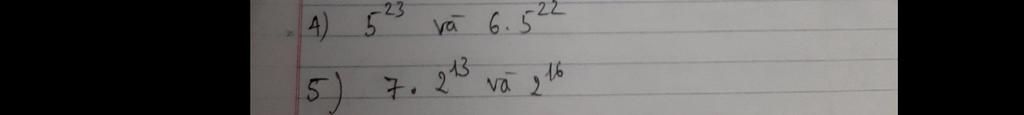 4) 5²³ và 6.5²²
5) 7.2¹³ và 2¹⁶